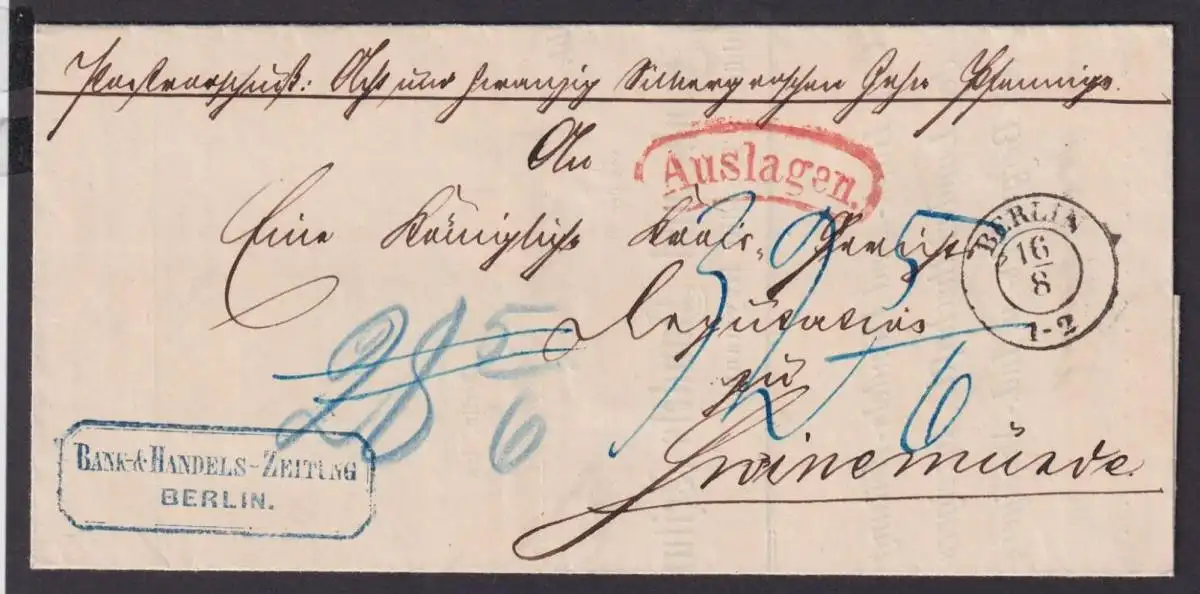 Postvorschuß: Acht und zwanzig Silbergroschen Zehn Pfennige.
An
Auslagen.
Eine Königliche Kreis-Gerichts
BERLIN
16
8
1-2
Deputation
zu
Swinemünde
28 5
6
32 5
6
BANK-& HANDELS-ZEITUNG
BERLIN.